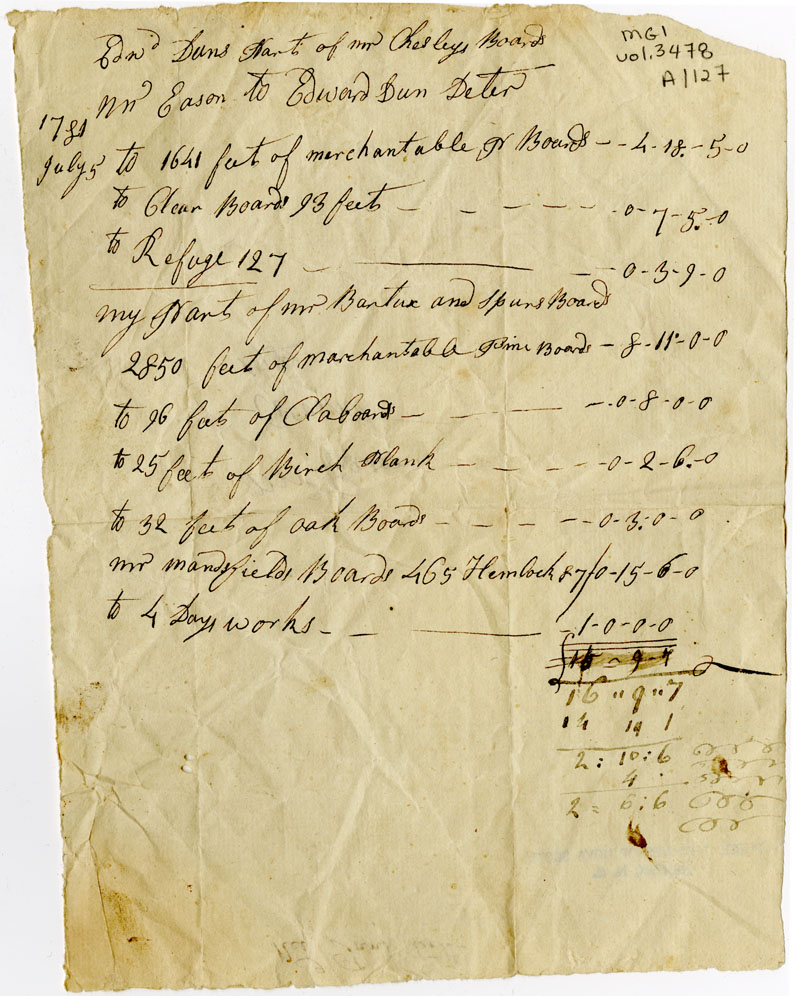 Edwd Duns Part of mr Chesleys Boards
MG1
vol. 3478
A/127
Mr Eason to Edward Dun Deter
1781
July 5 to 1641 feet of merchantable pr Boards - - 4-18-5-0
to Clear Boards 93 feet - - - - - 0-7-5-0
to Refuge 127 - - 0-3-9-0
my Part of mr Bartux and Spurs Boards
2850 feet of marchantable Pine Boards - 8-11-0-0
to 96 feet of Claboards - - - 0-8-0-0
to 25 feet of Birch Plank - - - - 0-2-6-0
to 32 feet of oak Boards - - - - 0-3-0-0
mr mandsfields Boards 465 Hemlock 87/0-15-6-0
to 4 Days works - - - 1-0-0-0
16-9-7
16 " 9 " 7
14 19 1
2 : 10 : 6
4
2 = 6 : 6